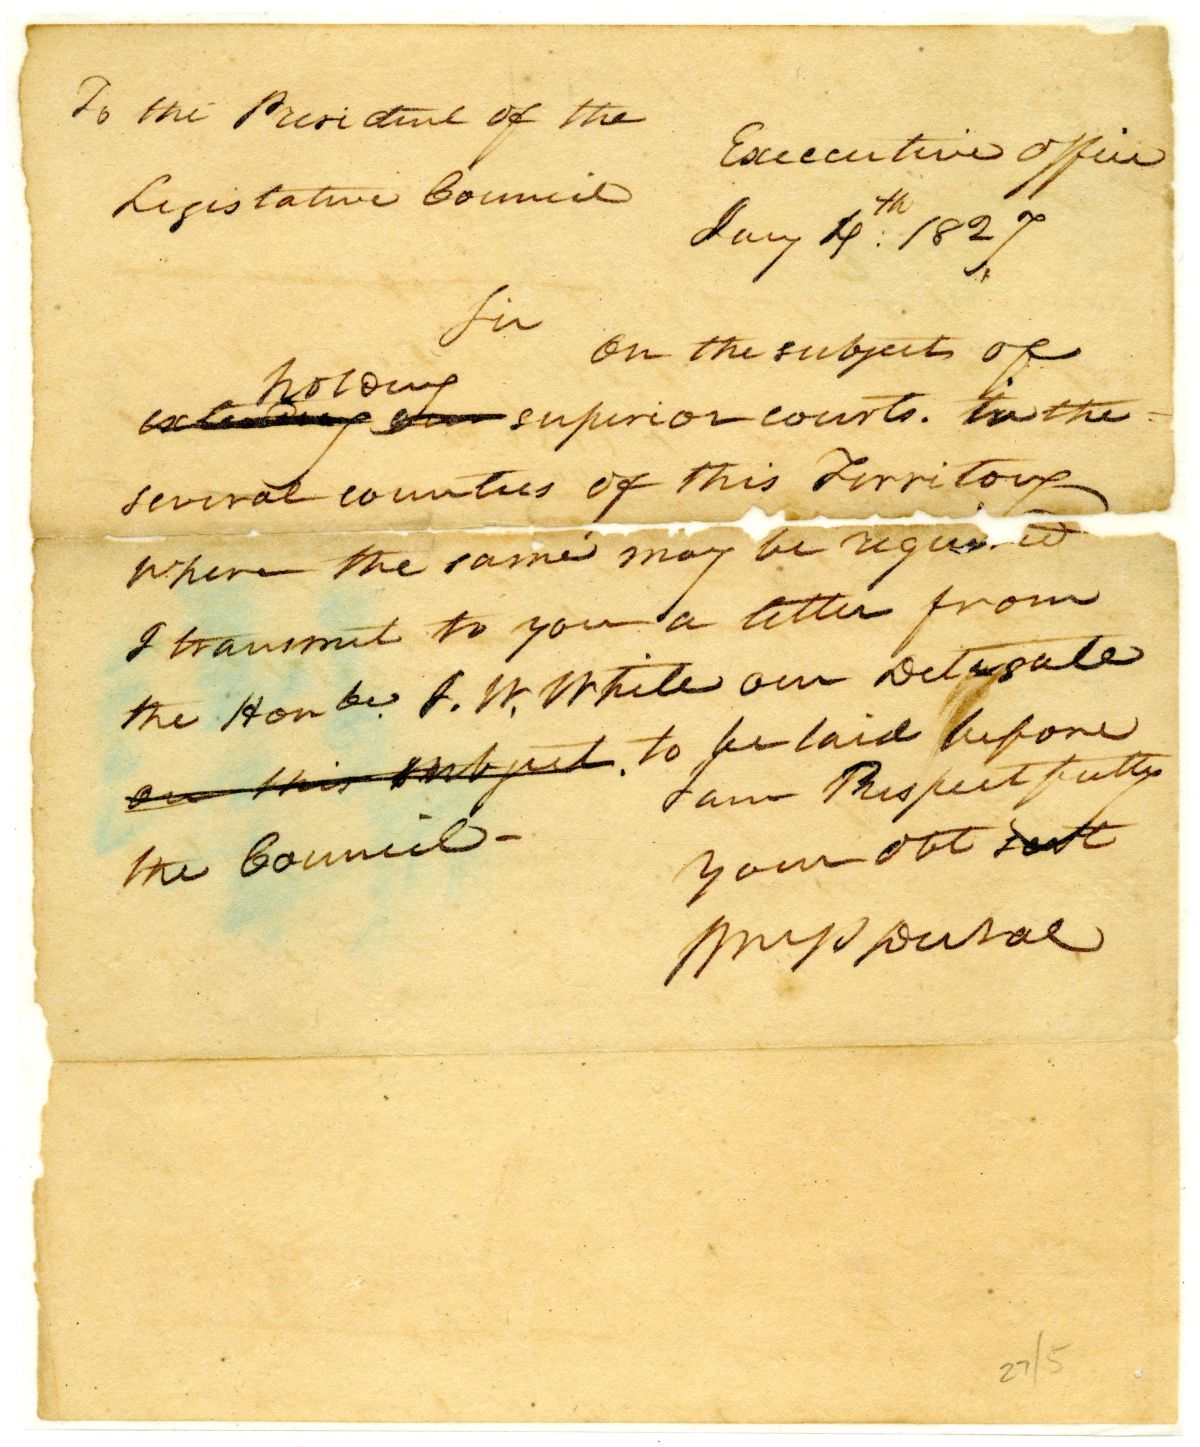 To the President of the
Legislative Council
Executive office
Jany 4th. 1827
Sir
On the subject of
holding
extending our superior courts. in the
several counties of this Territory
Where the same may be required
I transmit to you a letter from
the Honble. J. W. White our Delegate
on this subject. to be laid before
the Council-
I am Respectfully
your obt sert
Wm P DuVal
27/5